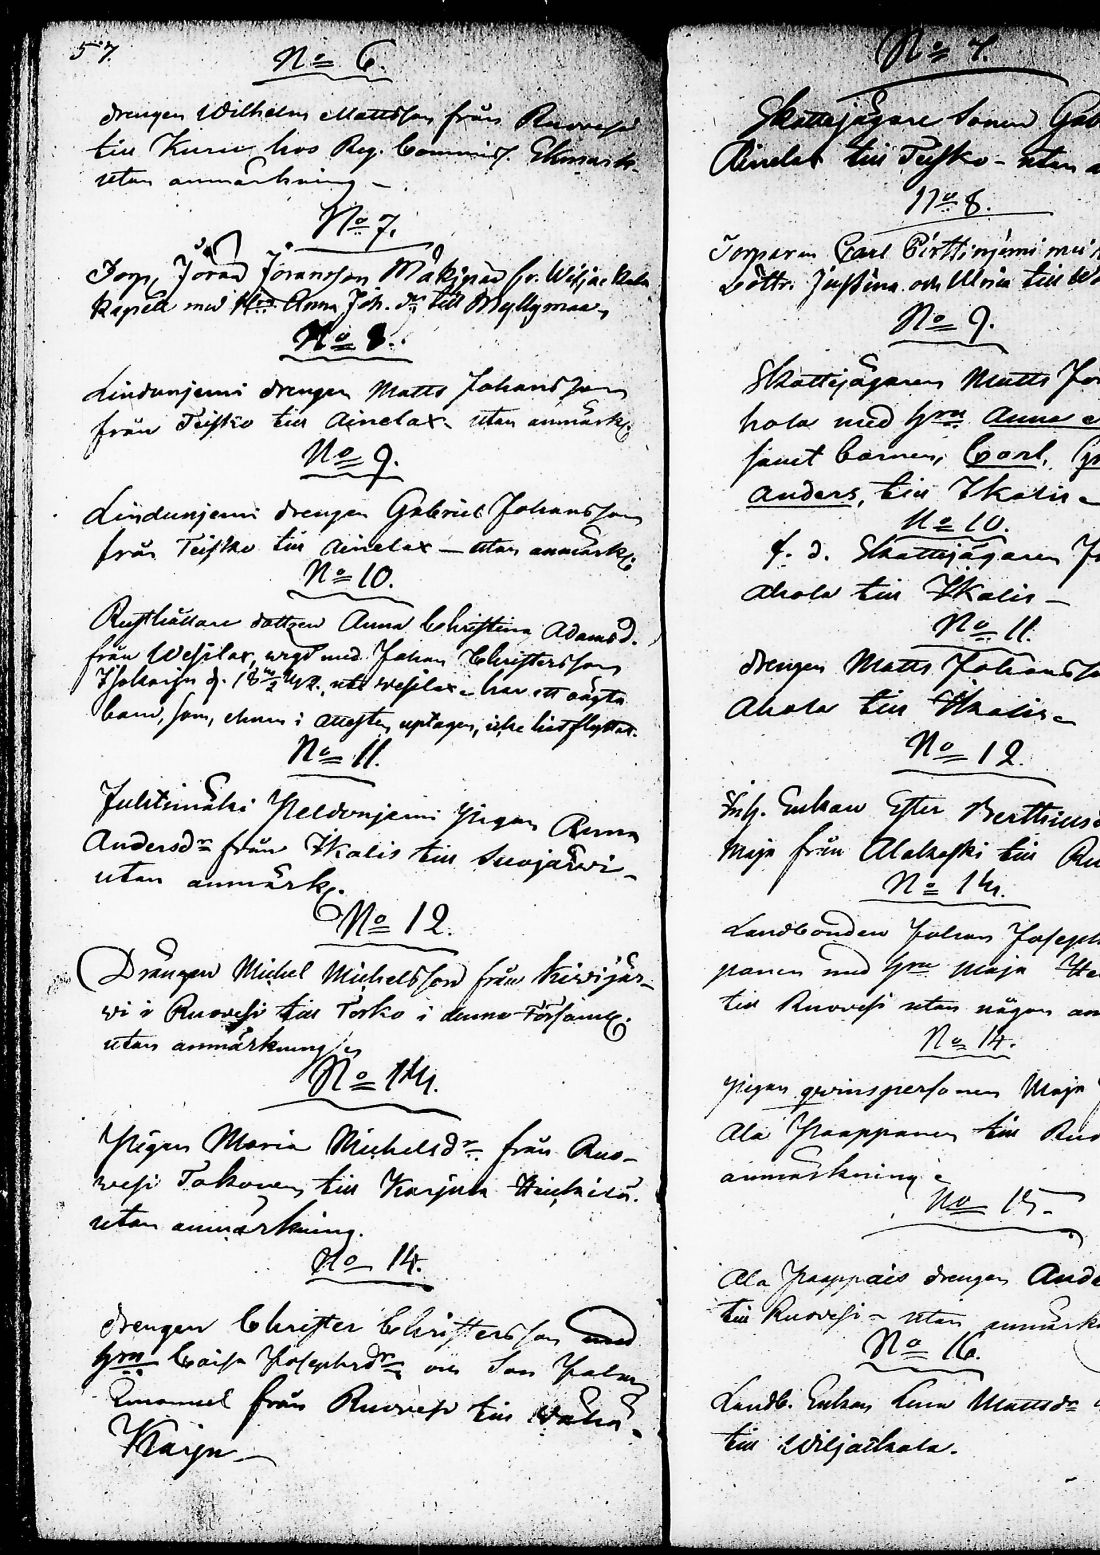 57.
No 6.
drengen Wilhelm Mattsson från Ruovesi
till Kuru hos Reg. Commiss.
utan anmärkning –
No 7.
Torp. Jöran Jöransson
kapell med Anna Joh. dr till Myllymaa
No 8.
Lindunjemi drengen Matts Johansson
från Teisko till Ainelax utan anmärk.
No 9.
Lindunjemi drengen Gabriel Johansson
från Teisko till Ainelax – utan anmärk.
No 10.
Rusthållare dottren Anna Christina Adamsd.
från Wesilax, wigd med Johan Christersson
har ett oägta
barn, som, ehuru i attesten uptagen, icke hitflyttat.
No 11.
Juhtimäki Peldonjemi Pigan Anna
Andersdr från Ikalis till Suojärwi –
utan anmärk.
No 12.
Drängen Michel Michelsson från Kiwijär-
wi i Ruovesi till Torko i denna Församl.
utan anmärkning
No 13.
Pigan Maria Michelsdr. från Ruo-
vesi Tokonen till Karjula
utan anmärkning.
No 14.
drengen Christer Christersson med
hru Caisa Josephsdr och Son Johan
Emanuel från Ruovesi till Wähä-
Karju –
No 7.
Skattejägare Sonen Gab
Ainelax till Teisko – utan a
No 8.
Torparen Carl Perttinjemi med
Döttr. Justina och Maria till
No 9.
Skattejägaren Matts Jo
hola med hru Anna
samt barnen, Carl,
Anders, till Ikalis –
No 10.
f. d. Skattejägaren J
Ahola till Ikalis –
No 11.
drengen Matts Johansso
Ahola till Ikalis –
No 12.
Inh. Enkan Ester Berthils
Maja från Alakeski till Ru
No 13.
Landbonden Johan Joseph
panen med hru Maja He
till Ruovesi utan någon an
No 14.
Pigan qvinspersonen Maja
Ala Paappanen till Ruo
anmärkning –
No 15.
Ala Paappais drengen Ande
till Ruovesi – utan anmärk
No 16.
Landb. Enkan Lena Mattsdr
till Wiljakkala.